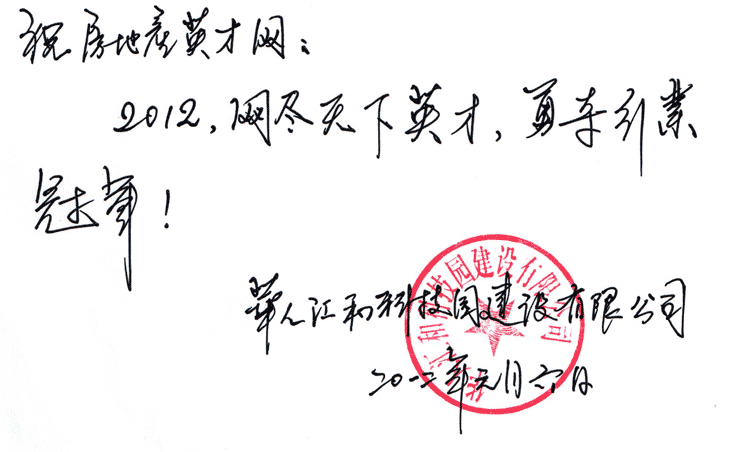 祝房地产英才网：
2012，网尽天下英才，勇夺引业
冠军！
华人江和科技园建设有限公司
二〇一二年元月六日
江和科技园建设有限公司